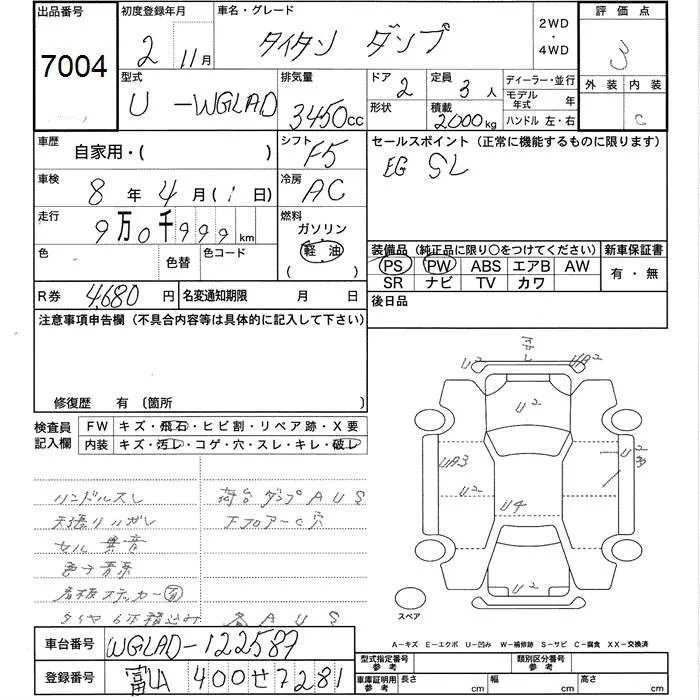 出品番号 初度登録年月 車名・グレード 2WD・4WD 評価点
7004 2 11月 タイタン ダンプ 3
型式 排気量 ドア 定員 ディーラー・並行 外装 内装
U-WGLAD 3450cc 2 3人 モデル年式 年 C
形状 積載 2000kg ハンドル 左・右
車歴 自家用・( ) シフト F5 セールスポイント(正常に機能するものに限ります)
EG SL
車検 8年4月(1日) 冷房 AC
走行 9万0千999km 燃料 ガソリン 軽油 ( )
色 色替 色コード
装備品(純正品に限り○をつけてください) 新車保証書
PS PW ABS エアB AW 有・無
SR ナビ TV カワ
R券 4,680円 名変通知期限 月 日 後日品
注意事項申告欄(不具合内容等は具体的に記入して下さい)
修復歴 有 (箇所
検査員記入欄 FW キズ・飛石・ヒビ割・リペア跡・X要
内装 キズ・汚レ・コゲ・穴・スレ・キレ・破レ
ハンドルスレ 荷台ダンプAUS
天張りハガレ 下フロアーC穴
セル異音
看板ステッカー有
タイヤ6本積込み 各AUS
U2 UA2
U2
UA3
U2
U4
U2
スペア
A-キズ E-エクボ U-凹み W-補修跡 S-サビ C-腐食 XX-交換済
車台番号 WGLAD-122587
型式指定番号 参考 類別区分番号 参考
登録番号 400せ7281
車庫証明用 参考 長さ cm 幅 cm 高さ cm